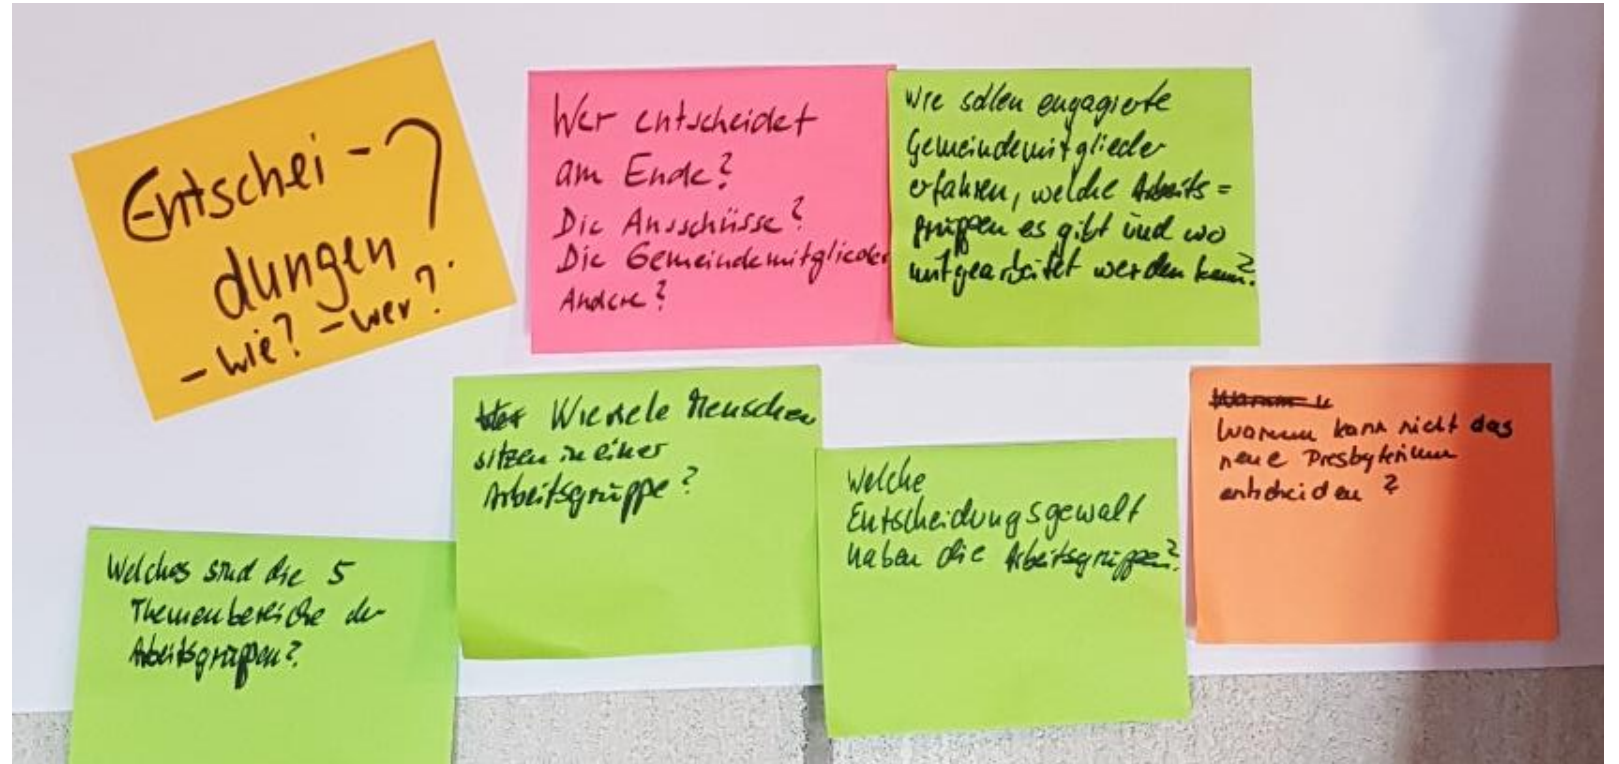 Entschei-?
dungen
- wie? - wer?
Wer entscheidet
am Ende?
Die Ausschüsse?
Die Gemeindemitglieder
Andere?
Wie sollen engagierte
Gemeindemitglieder
erfahren, welche Arbeits=
gruppen es gibt und wo
mitgearbeitet werden kann?
Wieviele Menschen
sitzen in einer
Arbeitsgruppe?
Welche
Entscheidungsgewalt
haben die Arbeitsgruppen?
Warum kann nicht das
neue Presbyterium
entscheiden?
Welches sind die 5
Themenbereiche der
Arbeitsgruppen?